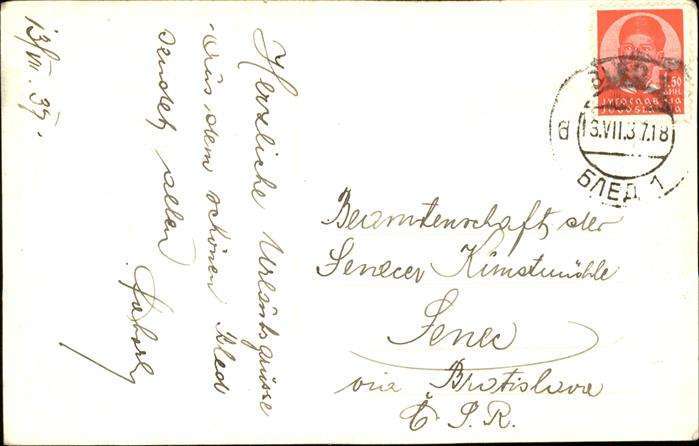 13/VII. 37.
Herzliche Urlaubsgrüsse
aus dem schönen Bled
sendet allen
1.50
ЈУГОСЛАВИЈА
JUGOSLAVIJA
13.VII.37.18
БЛЕД 1
Beamtenschaft der
Senecer Kunstmühle
Senec
via Bratislava
Č. S. R.